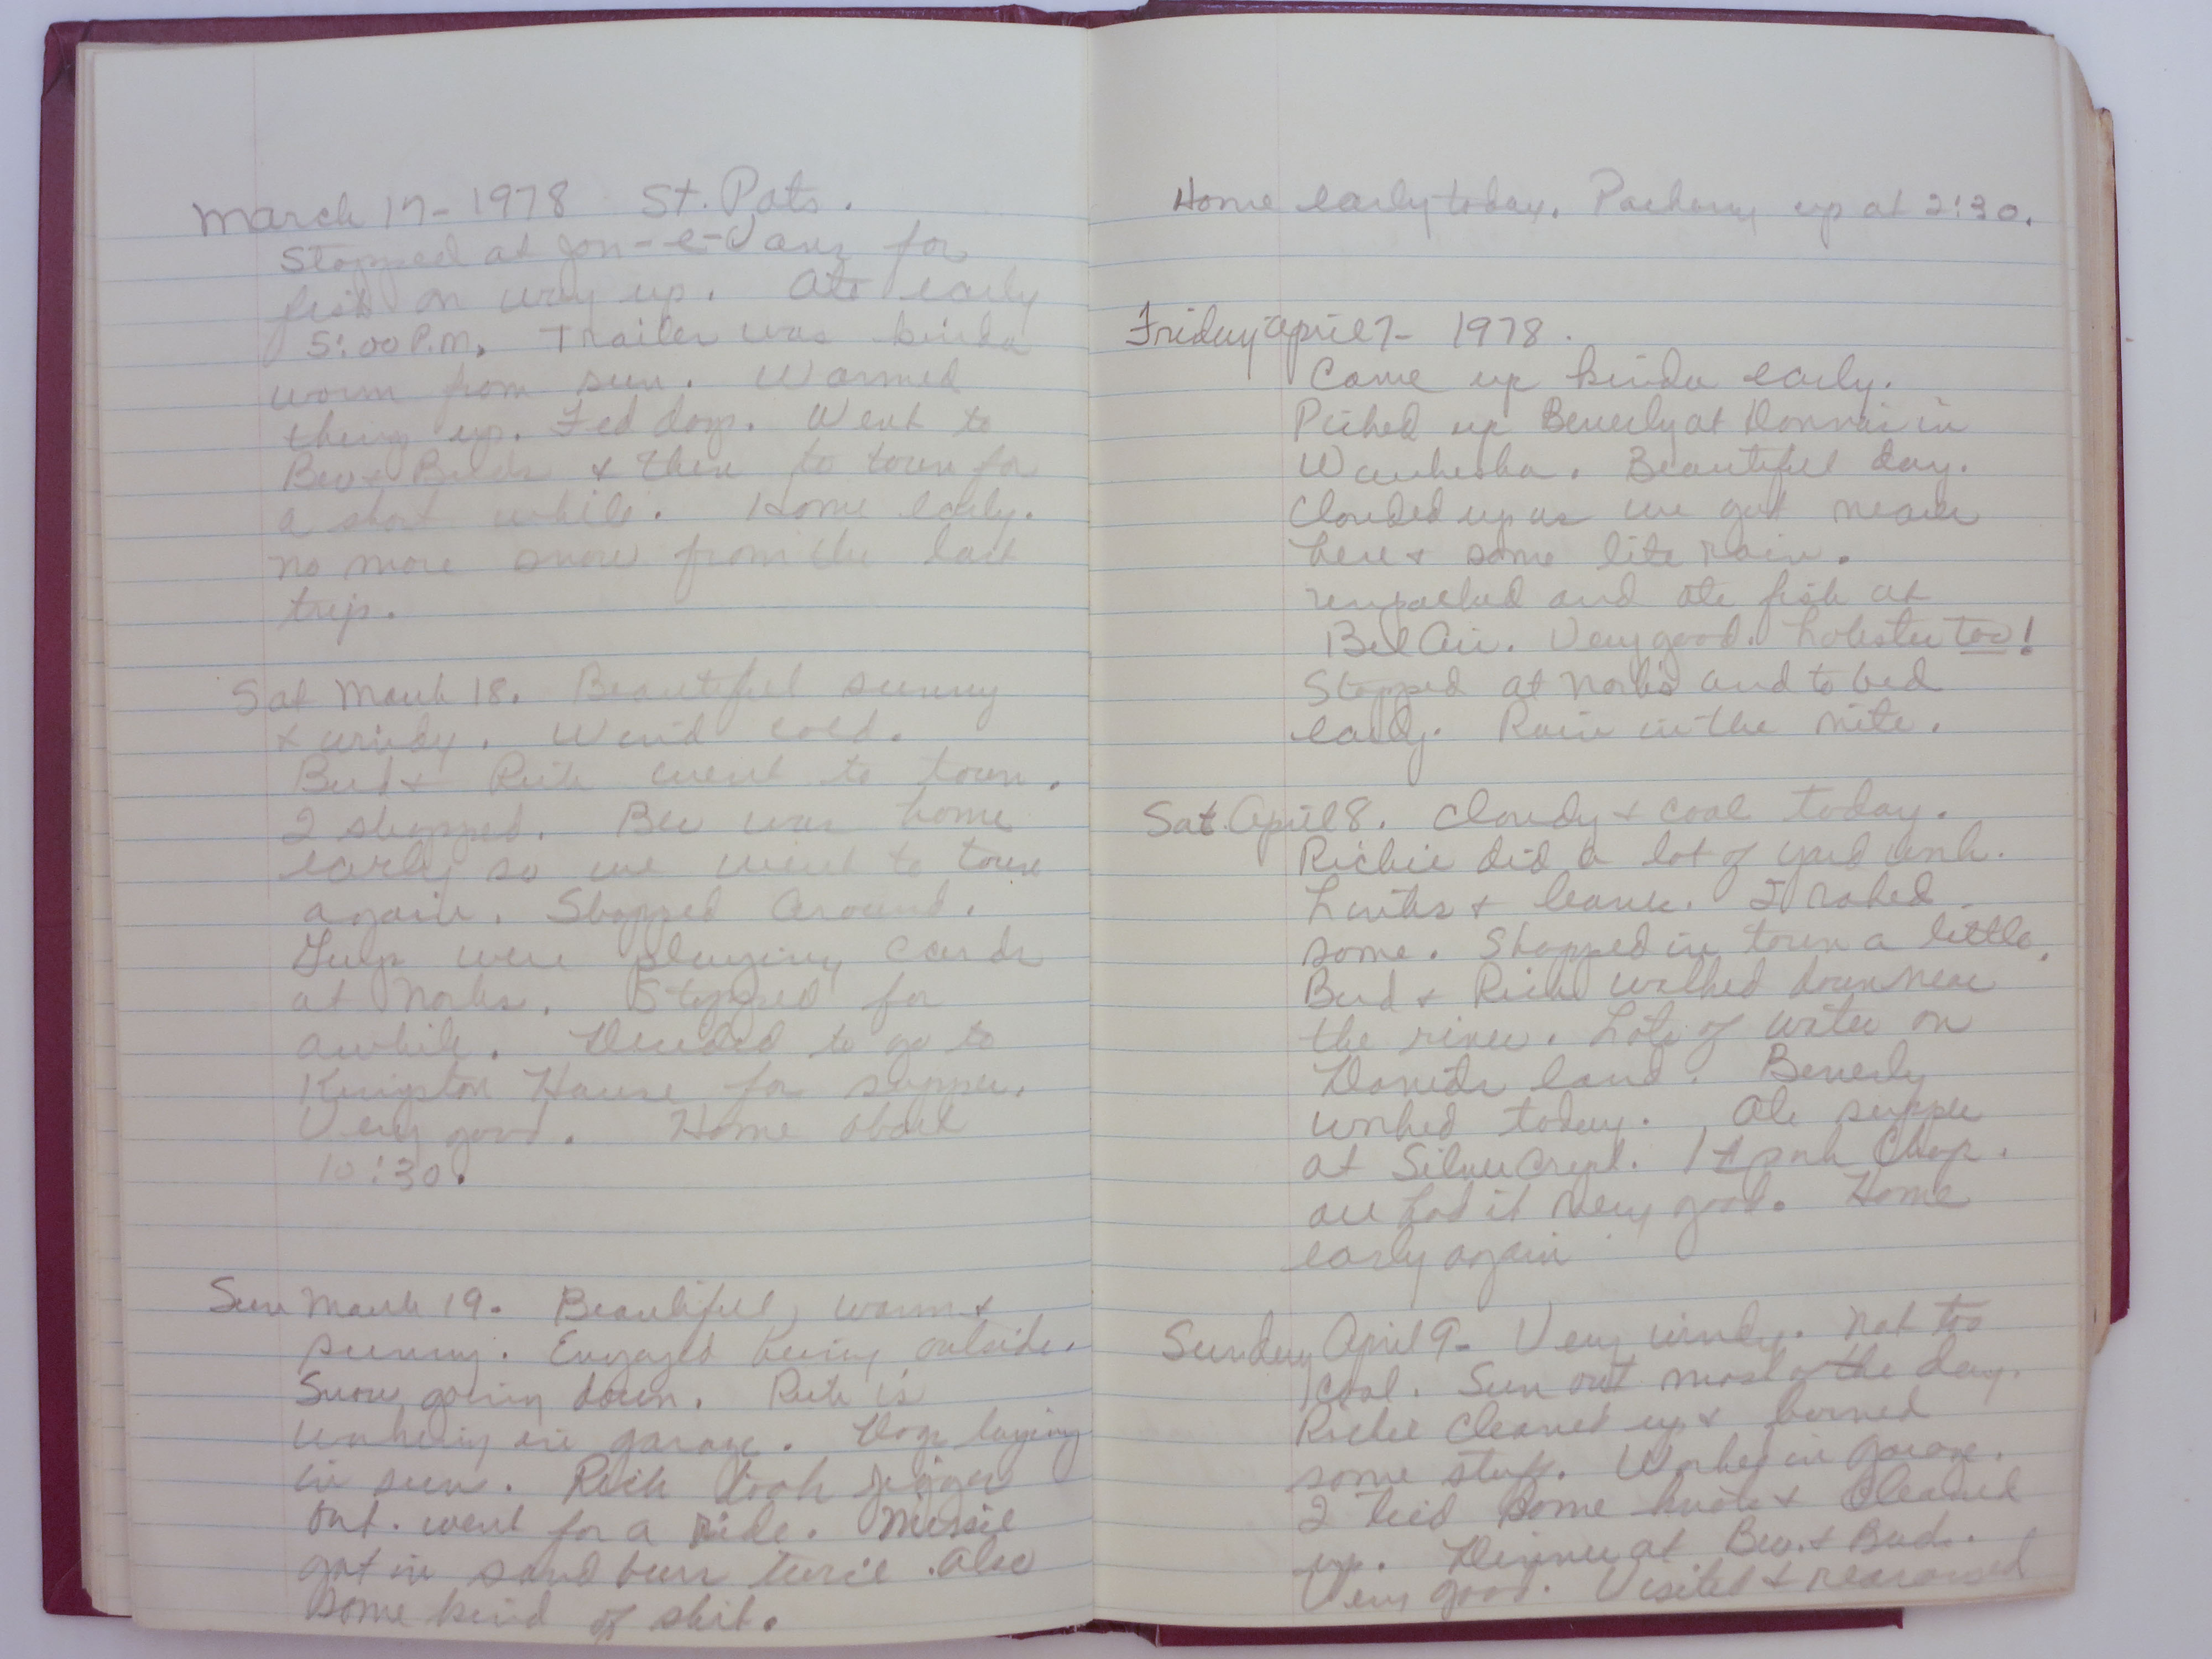 March 17 - 1978 St. Pats.
Stopped at Jon-e-Vanz for
fish on way up. Ate early
5:00 P.M. Trailer was kinda
warm from sun. Warmed
things up. Fed dogs. Went to
Bev & Buds & then to town for
a short while. Home early.
no more snow from the last
trip.
Sat March 18. Beautiful sunny
& windy. Wind cold.
Bud & Rich went to town.
I shopped. Bev was home
early so we went to town
again. Shopped around.
were playing cards
at Norbs. Stopped for
awhile. Decided to go to
Kingston House for supper.
Very good. Home about
10:30.
Sun March 19. Beautiful, warm &
sunny. Enjoyed being outside.
Snow going down. Rich is
working in garage. Dogs laying
in sun. Rich took
out. went for a ride. Missie
got in sand burr twice. also
some kind of shit.
Home early today. Packing up at 2:30.
Friday April 7 - 1978.
Came up kinda early.
Picked up Beverly at Donna's in
Waukesha. Beautiful day.
Clouded up as we got near
here & some lite rain.
unpacked and ate fish at
Bel Air. Very good. Lobster too!
Stopped at Norb's and to bed
early. Rain in the nite.
Sat. April 8. Cloudy & cool today.
Richie did a lot of yard work.
& leaves. I raked
some. Shopped in town a little.
Bud & Richie walked down near
the river. Lots of water on
land. Beverly
worked today. Ate supper
at Silvercryst. 1# pork Chop.
all had it very good. Home
early again
Sunday April 9 - Very windy. Not too
cool. Sun out most of the day.
Richie cleaned up & burned
some stuff. Worked in garage.
I tied some knots & Cleaned
up. Dinner at Bev. & Buds.
Very good. Visited &